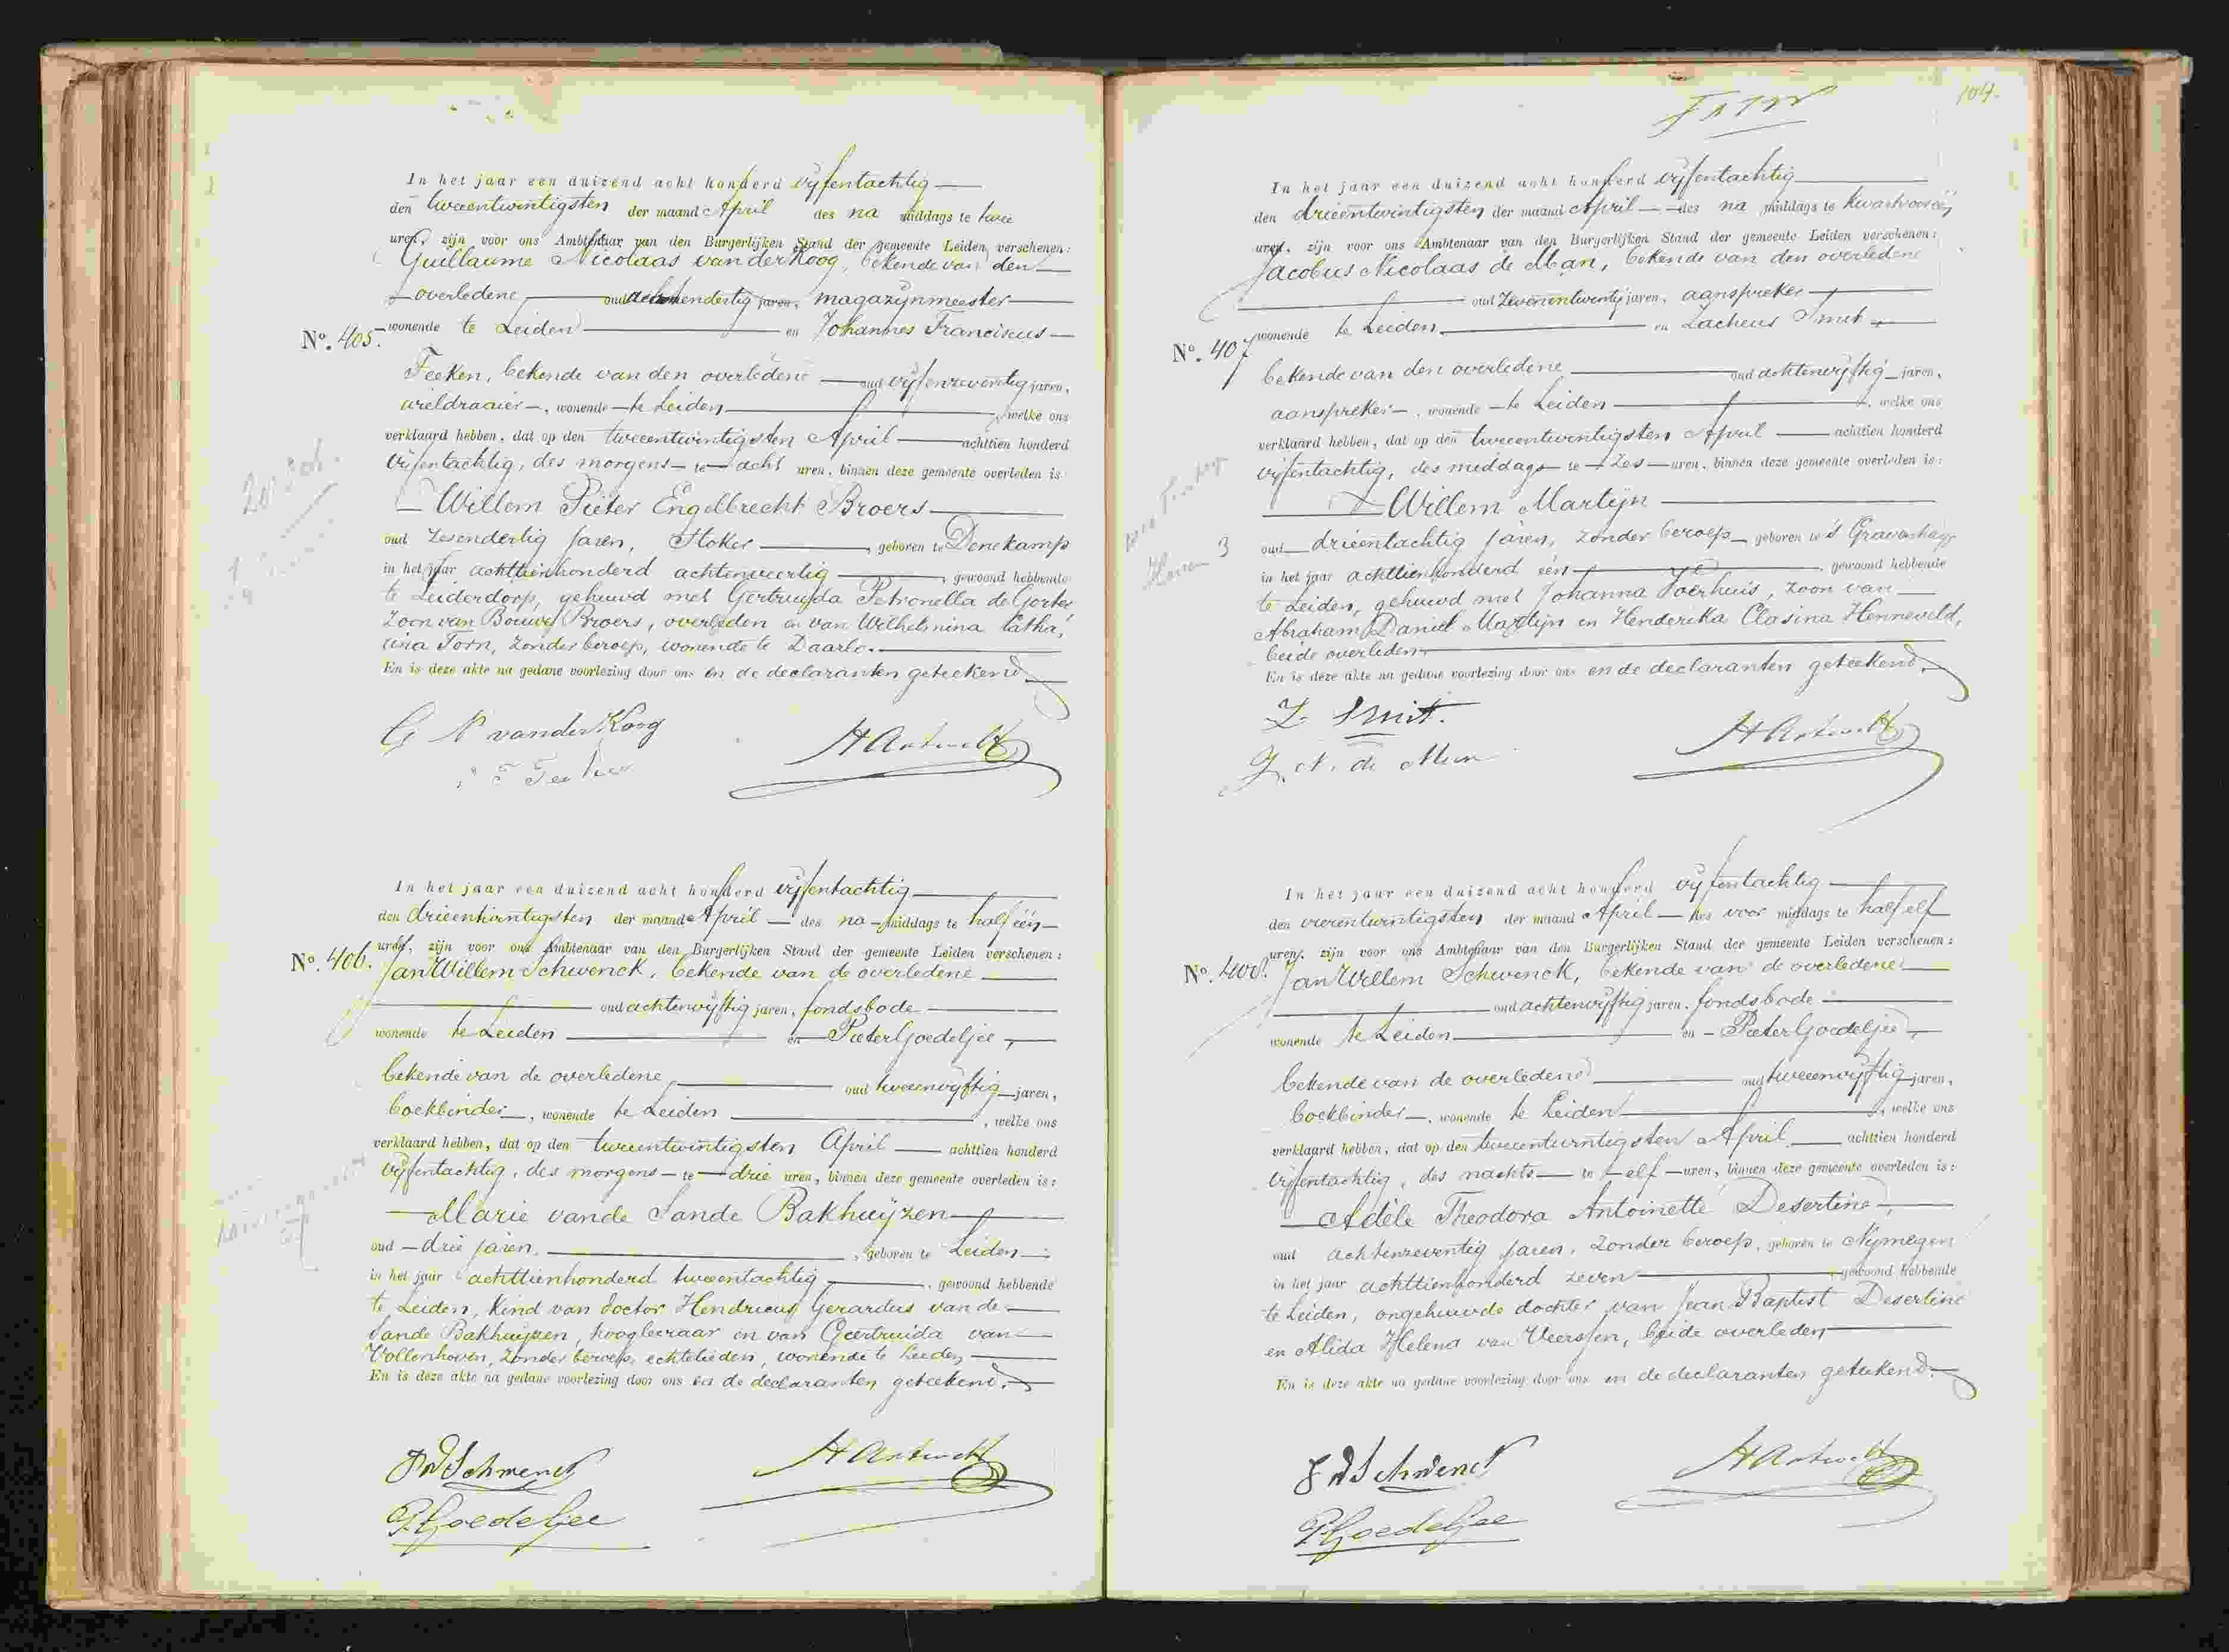 In het jaar een duizend acht honderd vijfentachtig
den tweeentwintigsten der maand April des na middags te twee
uren, zijn voor ons Ambtenaar van den Burgerlijken Stand der gemeente Leiden verschenen:
Guillaume Nicolaas van der Koog, bekende van den
overledene oud achtendertig jaren, magazijnmeester
No. 405. wonende te Leiden en Johannes Franciscus
Feeken, bekende van den overledene oud vijfenzeventig jaren,
wieldraaier, wonende te Leiden, welke ons
verklaard hebben, dat op den tweeentwintigsten April achttien honderd
vijfentachtig, des morgens te acht uren, binnen deze gemeente overleden is
Willem Pieter Engelbrecht Broers
oud zesendertig jaren, Stoker, geboren te Denekamp
in het jaar achttienhonderd achtenveertig, gewoond hebbende
te Leiderdorp, gehuwd met Gertruida Petronella de Gorter
Zoon van Bouwe Broers, overleden en van Wilhelmina Catha,
rina Torn, zonder beroep, wonende te Daarle.
En is deze akte na gedane voorlezing door ons en de declaranten geteekend
G N van der Koog
HArtwelt
F Feeken
In het jaar een duizend acht honderd vijfentachtig
den drieentwintigsten der maand April des na middags te half één
uren, zijn voor ons Ambtenaar van den Burgerlijken Stand der gemeente Leiden verschenen:
No. 406. Jan Willem Schwenck, bekende van de overledene
oud achtenvijftig jaren, fondsbode
wonende te Leiden en Pieter Goedeljee
bekende van de overledene oud tweeenvijftig jaren,
boekbinder, wonende te Leiden, welke ons
verklaard hebben, dat op den tweeentwintigsten April achttien honderd
vijfentachtig, des morgens te drie uren, binnen deze gemeente overleden is:
Marie vande Sande Bakhuyzen
oud drie jaren, geboren te Leiden
in het jaar achttienhonderd tweeentachtig, gewoond hebbende
te Leiden, kind van doctor Hendricus Gerardus van de
Sande Bakhuyzen, hoogleeraar en van Geertruida van
Vollenhoven, zonder beroep, echtelieden, wonende te Leiden
En is deze akte na gedane voorlezing door ons en de declaranten geteekend.
JWSchwenck
HArtwelt
PGoedeljee
104.
In het jaar een duizend acht honderd vijfentachtig
den drieentwintigsten der maand April des na middags te kwartvoor één
uren, zijn voor ons Ambtenaar van den Burgerlijken Stand der gemeente Leiden verschenen:
Jacobus Nicolaas de Man, bekende van den overledene
oud zevenentwintig jaren, aanspreker
wonende te Leiden en Zacheus Smit
No. 407
bekende van den overledene oud achtenvijftig jaren,
aanspreker, wonende te Leiden, welke ons
verklaard hebben, dat op den tweeentwintigsten April achttien honderd
vijfentachtig, des middags te zes uren, binnen deze gemeente overleden is:
Willem Martijn
oud drieentachtig jaren, zonder beroep, geboren te 's Gravenhage
in het jaar achttienhonderd één, gewoond hebbende
te Leiden, gehuwd met Johanna Voerhuis, zoon van
Abraham Daniel Martijn en Henderika Clasina Henneveld,
beide overleden
En is deze akte na gedane voorlezing door ons en de declaranten geteekend,
Z. Smit.
HArtwelt
J. N. de Man
In het jaar een duizend acht honderd vijfentachtig
den vierentwintigsten der maand April des voor middags te half elf
uren, zijn voor ons Ambtenaar van den Burgerlijken Stand der gemeente Leiden verschenen:
No. 408. Jan Willem Schwenck, bekende van de overledene
oud achtenvijftig jaren, fondsbode
wonende te Leiden en Pieter Goedeljee
bekende van de overledene oud tweeenvijftig jaren,
boekbinder, wonende te Leiden, welke ons
verklaard hebben, dat op den tweeentwintigsten April achttien honderd
vijfentachtig, des nachts te elf uren, binnen deze gemeente overleden is:
Adèle Theodora Antoinette Desertine
oud achtenzeventig jaren, zonder beroep, geboren te Nijmegen
in het jaar achttienhonderd zeven, gewoond hebbende
te Leiden, ongehuwde dochter van Jean Baptist Desertine
en Alida Helena van Veerssen, beide overleden
En is deze akte na gedane voorlezing door ons en de declaranten geteekend.
JWSchwenck
HArtwelt
PGoedeljee